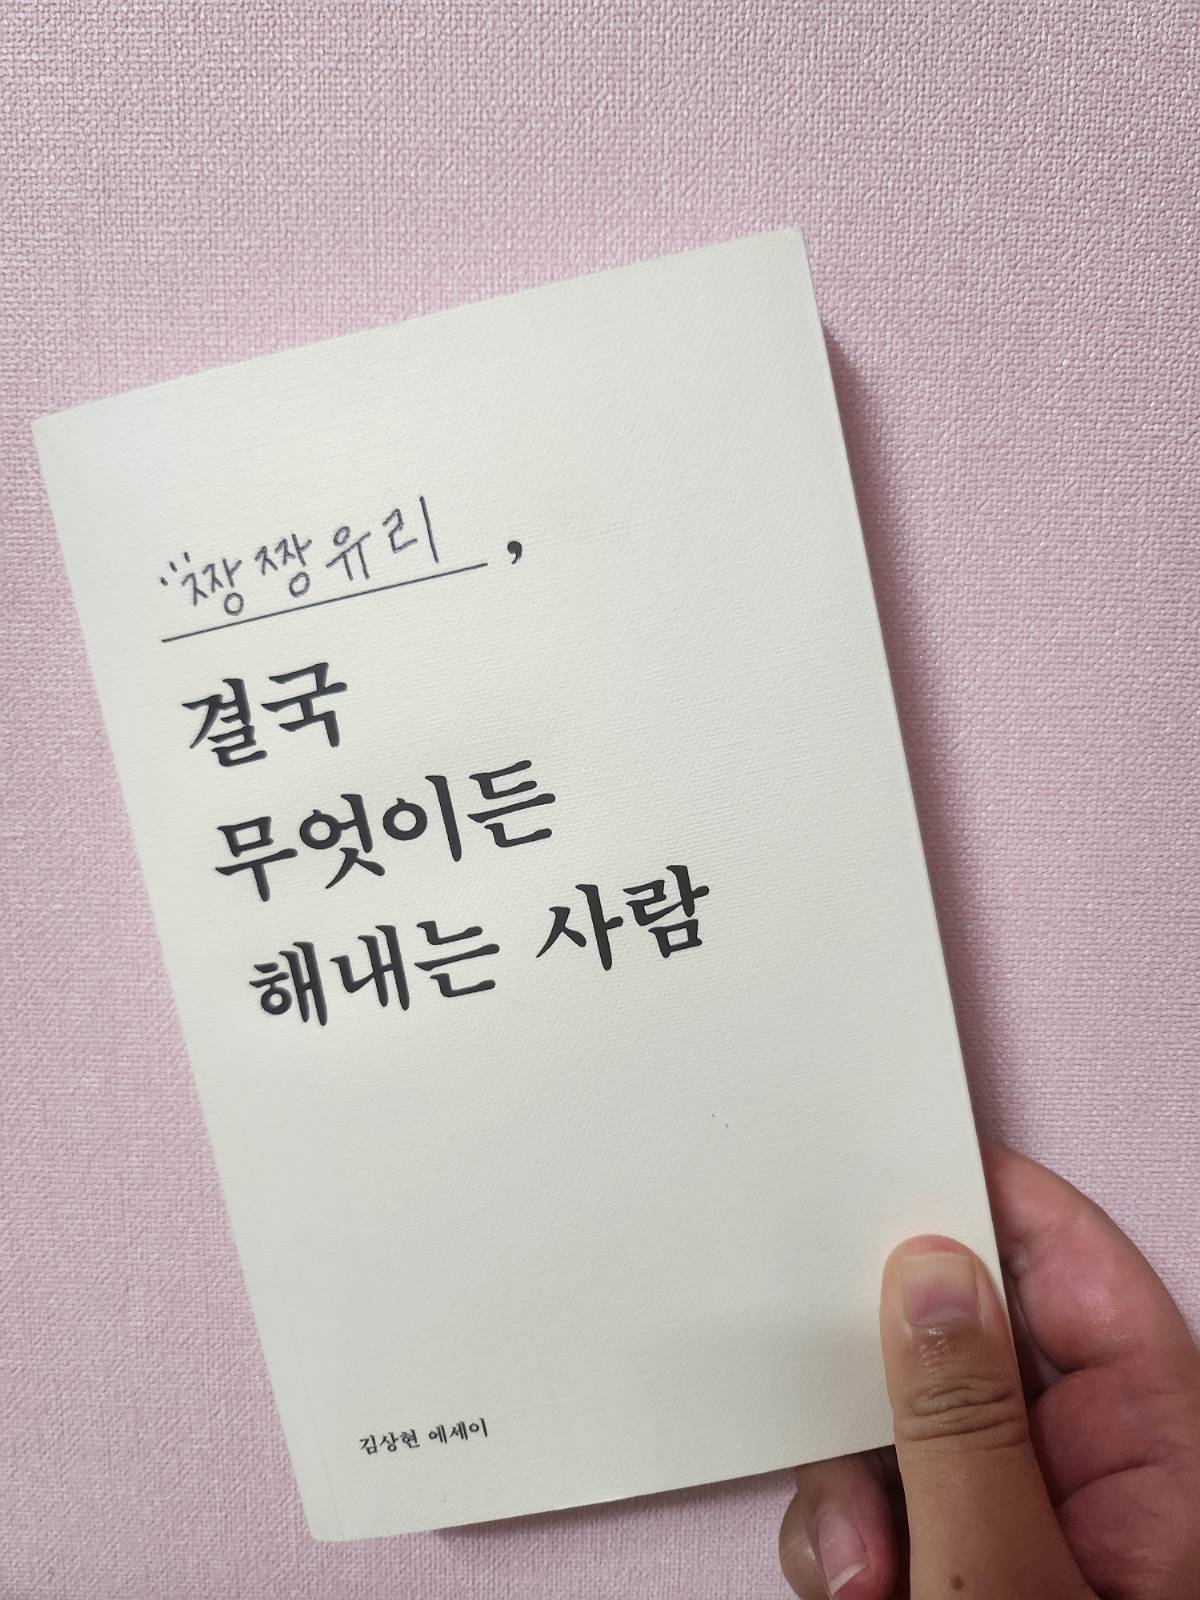 짱짱유리,
결국
무엇이든
해내는 사람
김상현 에세이